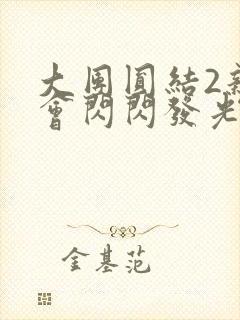 大團圓結2新
會閃閃發光
金基范